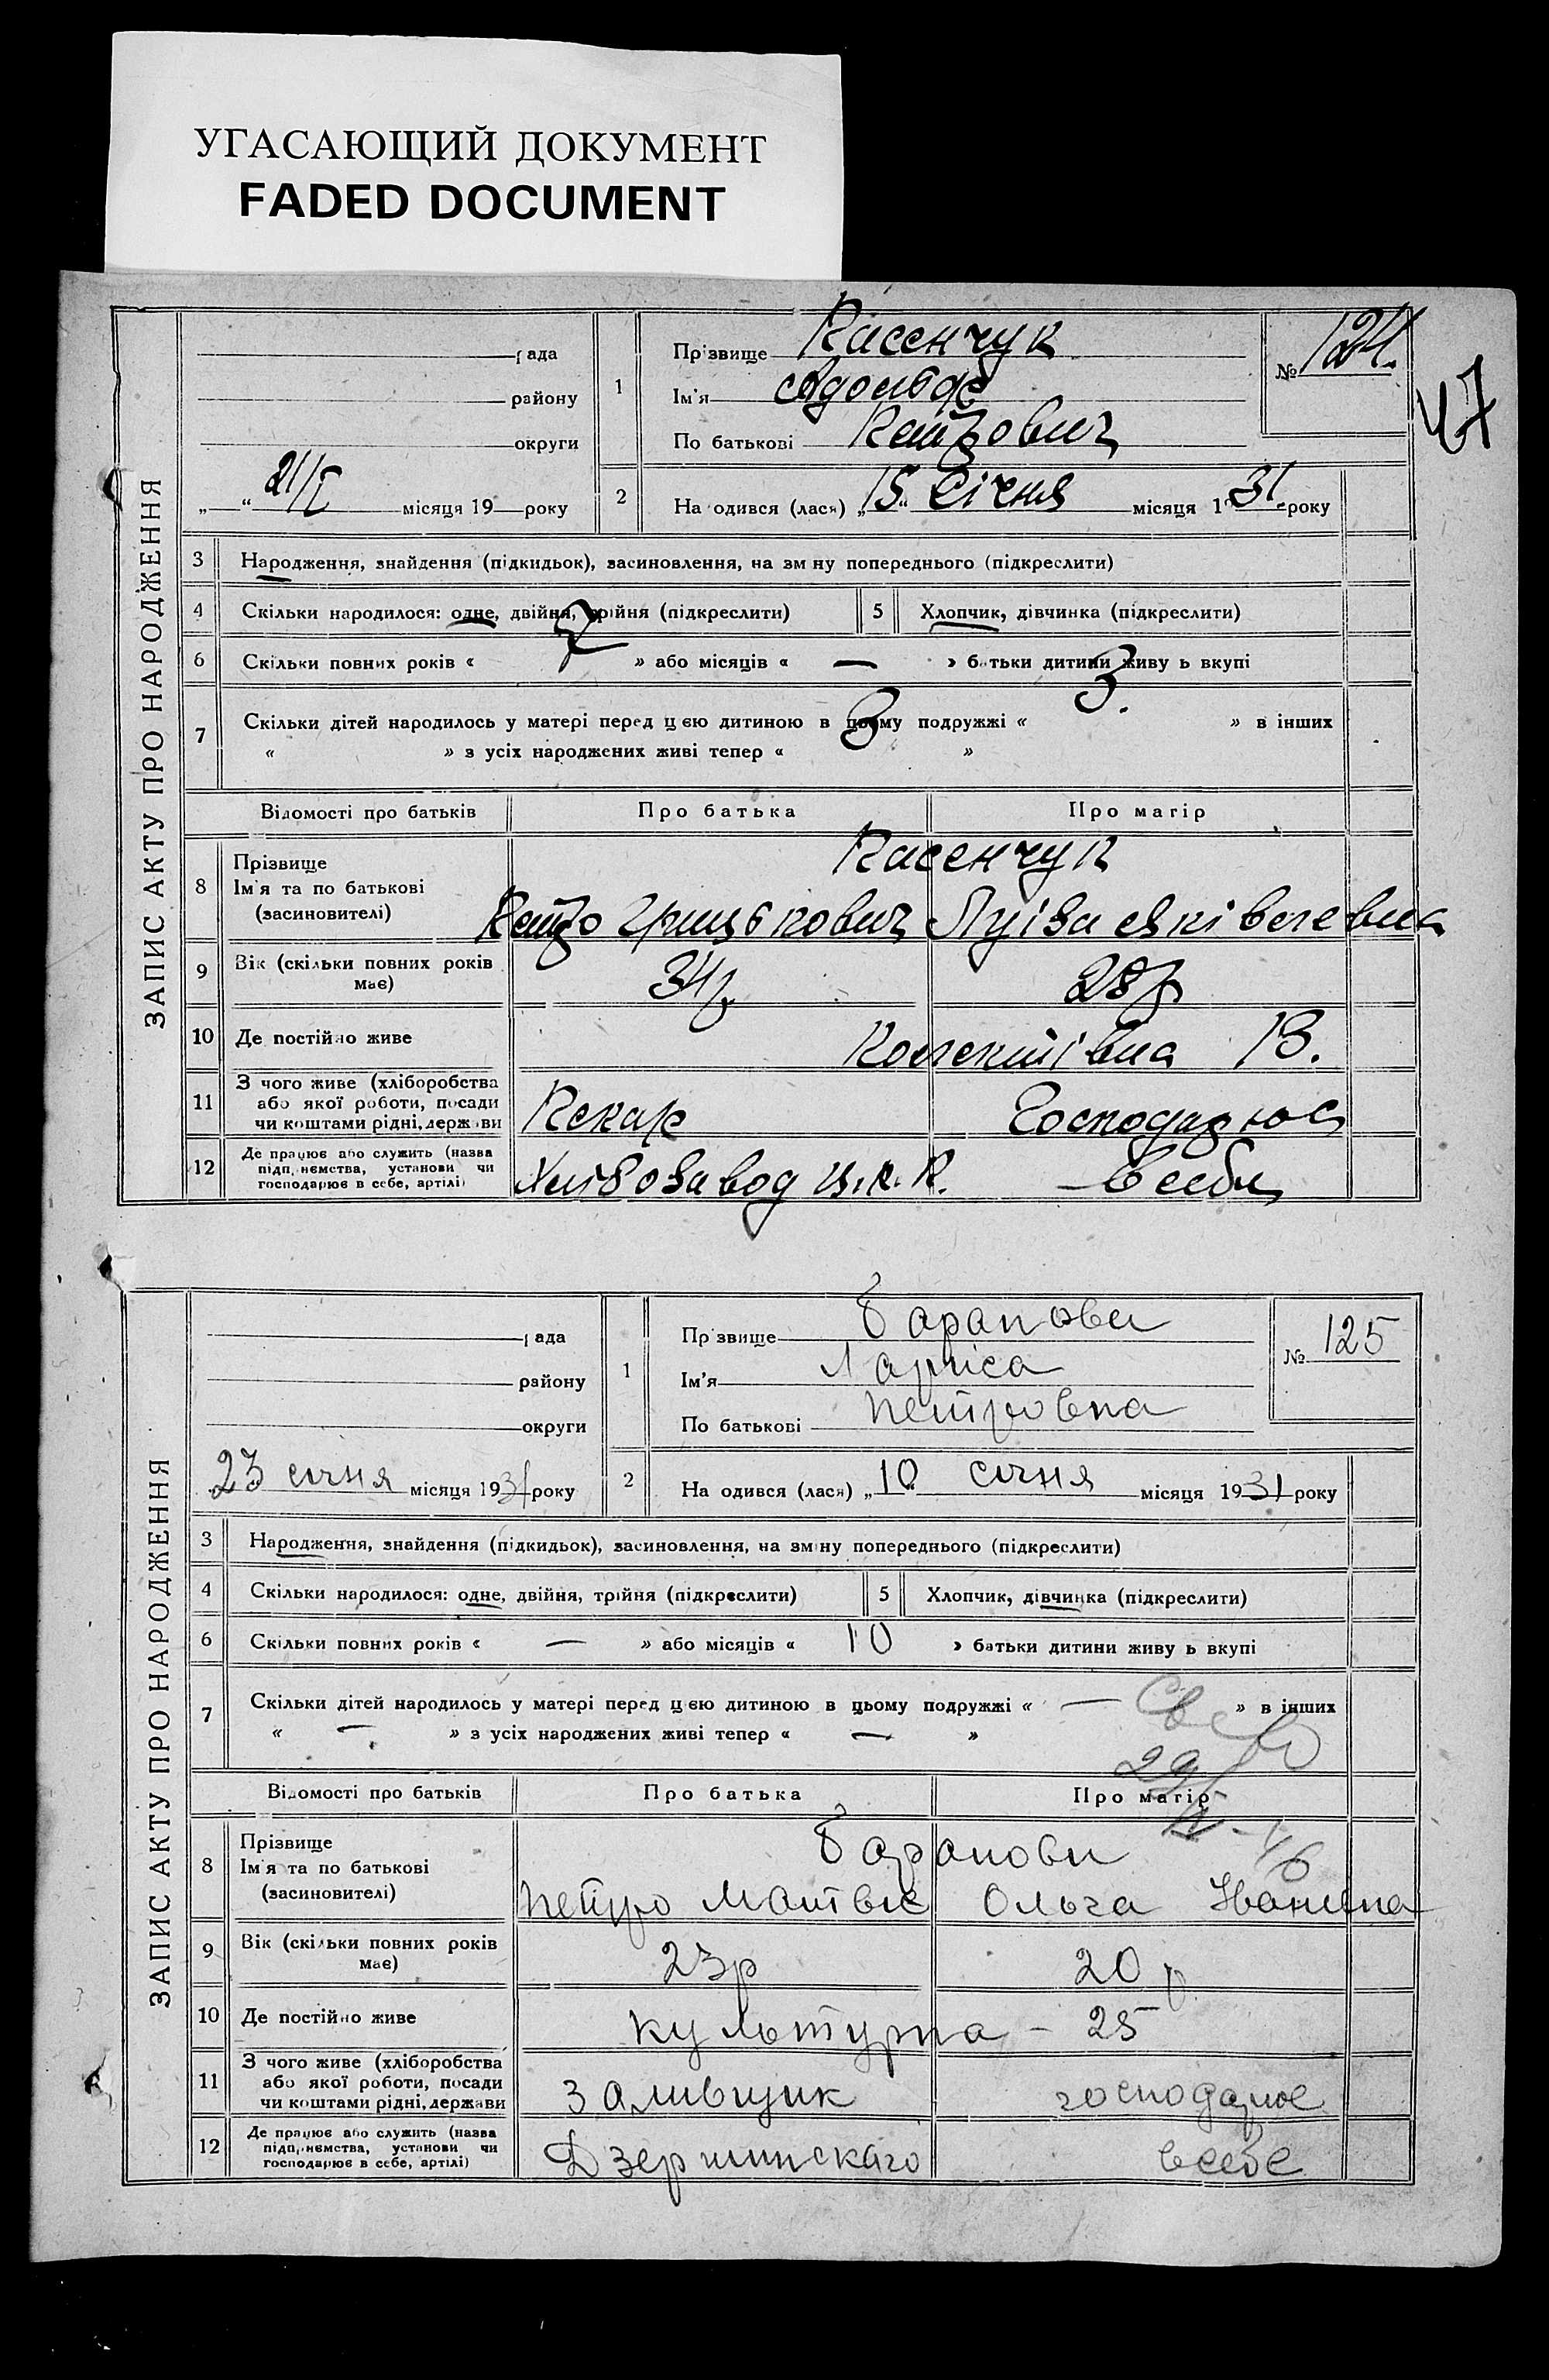 УГАСАЮЩИЙ ДОКУМЕНТ
FADED DOCUMENT
ЗАПИС АКТУ ПРО НАРОДЖЕННЯ
рада
району
округи
„ “ 21/I місяця 19 року
1
Прізвище Касенчук
Ім'я Адольф
По батькові Петрович
№ 124.
47
2
Народився (лася) „15“ Січня місяця 1931 року
3 Народження, знайдення (підкидьок), засиновлення, на зміну попереднього (підкреслити)
4 Скільки народилося: одне, двійня, трійня (підкреслити) 5 Хлопчик, дівчинка (підкреслити)
6 Скільки повних років « 7 » або місяців « — » батьки дитини живуть вкупі
7 Скільки дітей народилось у матері перед цією дитиною в цьому подружжі « 3. » в інших
« » з усіх народжених живі тепер « 3 »
Відомості про батьків Про батька Про матір
8 Прізвище Касенчук
Ім'я та по батькові
(засиновителі) Петро Грицькович Луіза
9 Вік (скільки повних років має) 34р. 28р
10 Де постійно живе 13.
11 З чого живе (хліборобства або якої роботи, посади чи коштами рідні, держави Пекар Господарює
12 Де працює або служить (назва підприємства, установи чи господарює в себе, артілі) Хлібозавод Ц.Р.К. в себе
ЗАПИС АКТУ ПРО НАРОДЖЕННЯ
рада
району
округи
23 січня місяця 1931 року
1
Прізвище Баранова
Ім'я Ларіса
По батькові Петровна
№ 125
2
Народився (лася) „10 січня місяця 1931 року
3 Народження, знайдення (підкидьок), засиновлення, на зміну попереднього (підкреслити)
4 Скільки народилося: одне, двійня, трійня (підкреслити) 5 Хлопчик, дівчинка (підкреслити)
6 Скільки повних років « — » або місяців « 10 » батьки дитини живуть вкупі
7 Скільки дітей народилось у матері перед цією дитиною в цьому подружжі « — » в інших
« — » з усіх народжених живі тепер « — »
Відомості про батьків Про батька Про матір
8 Прізвище Баранови
Ім'я та по батькові
(засиновителі) Петро Матвіє Ольга Івановна
9 Вік (скільки повних років має) 23р 20 р.
10 Де постійно живе культурна - 25
11 З чого живе (хліборобства або якої роботи, посади чи коштами рідні, держави Заливщик господарює
12 Де працює або служить (назва підприємства, установи чи господарює в себе, артілі) Дзержинскаго в себе